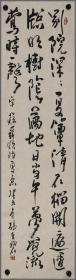 別院深深夏簟清石榴開遍透
簾明樹陰滿地日當午夢覺流
鶯時一聲 宋蘇舜欽詩夏意